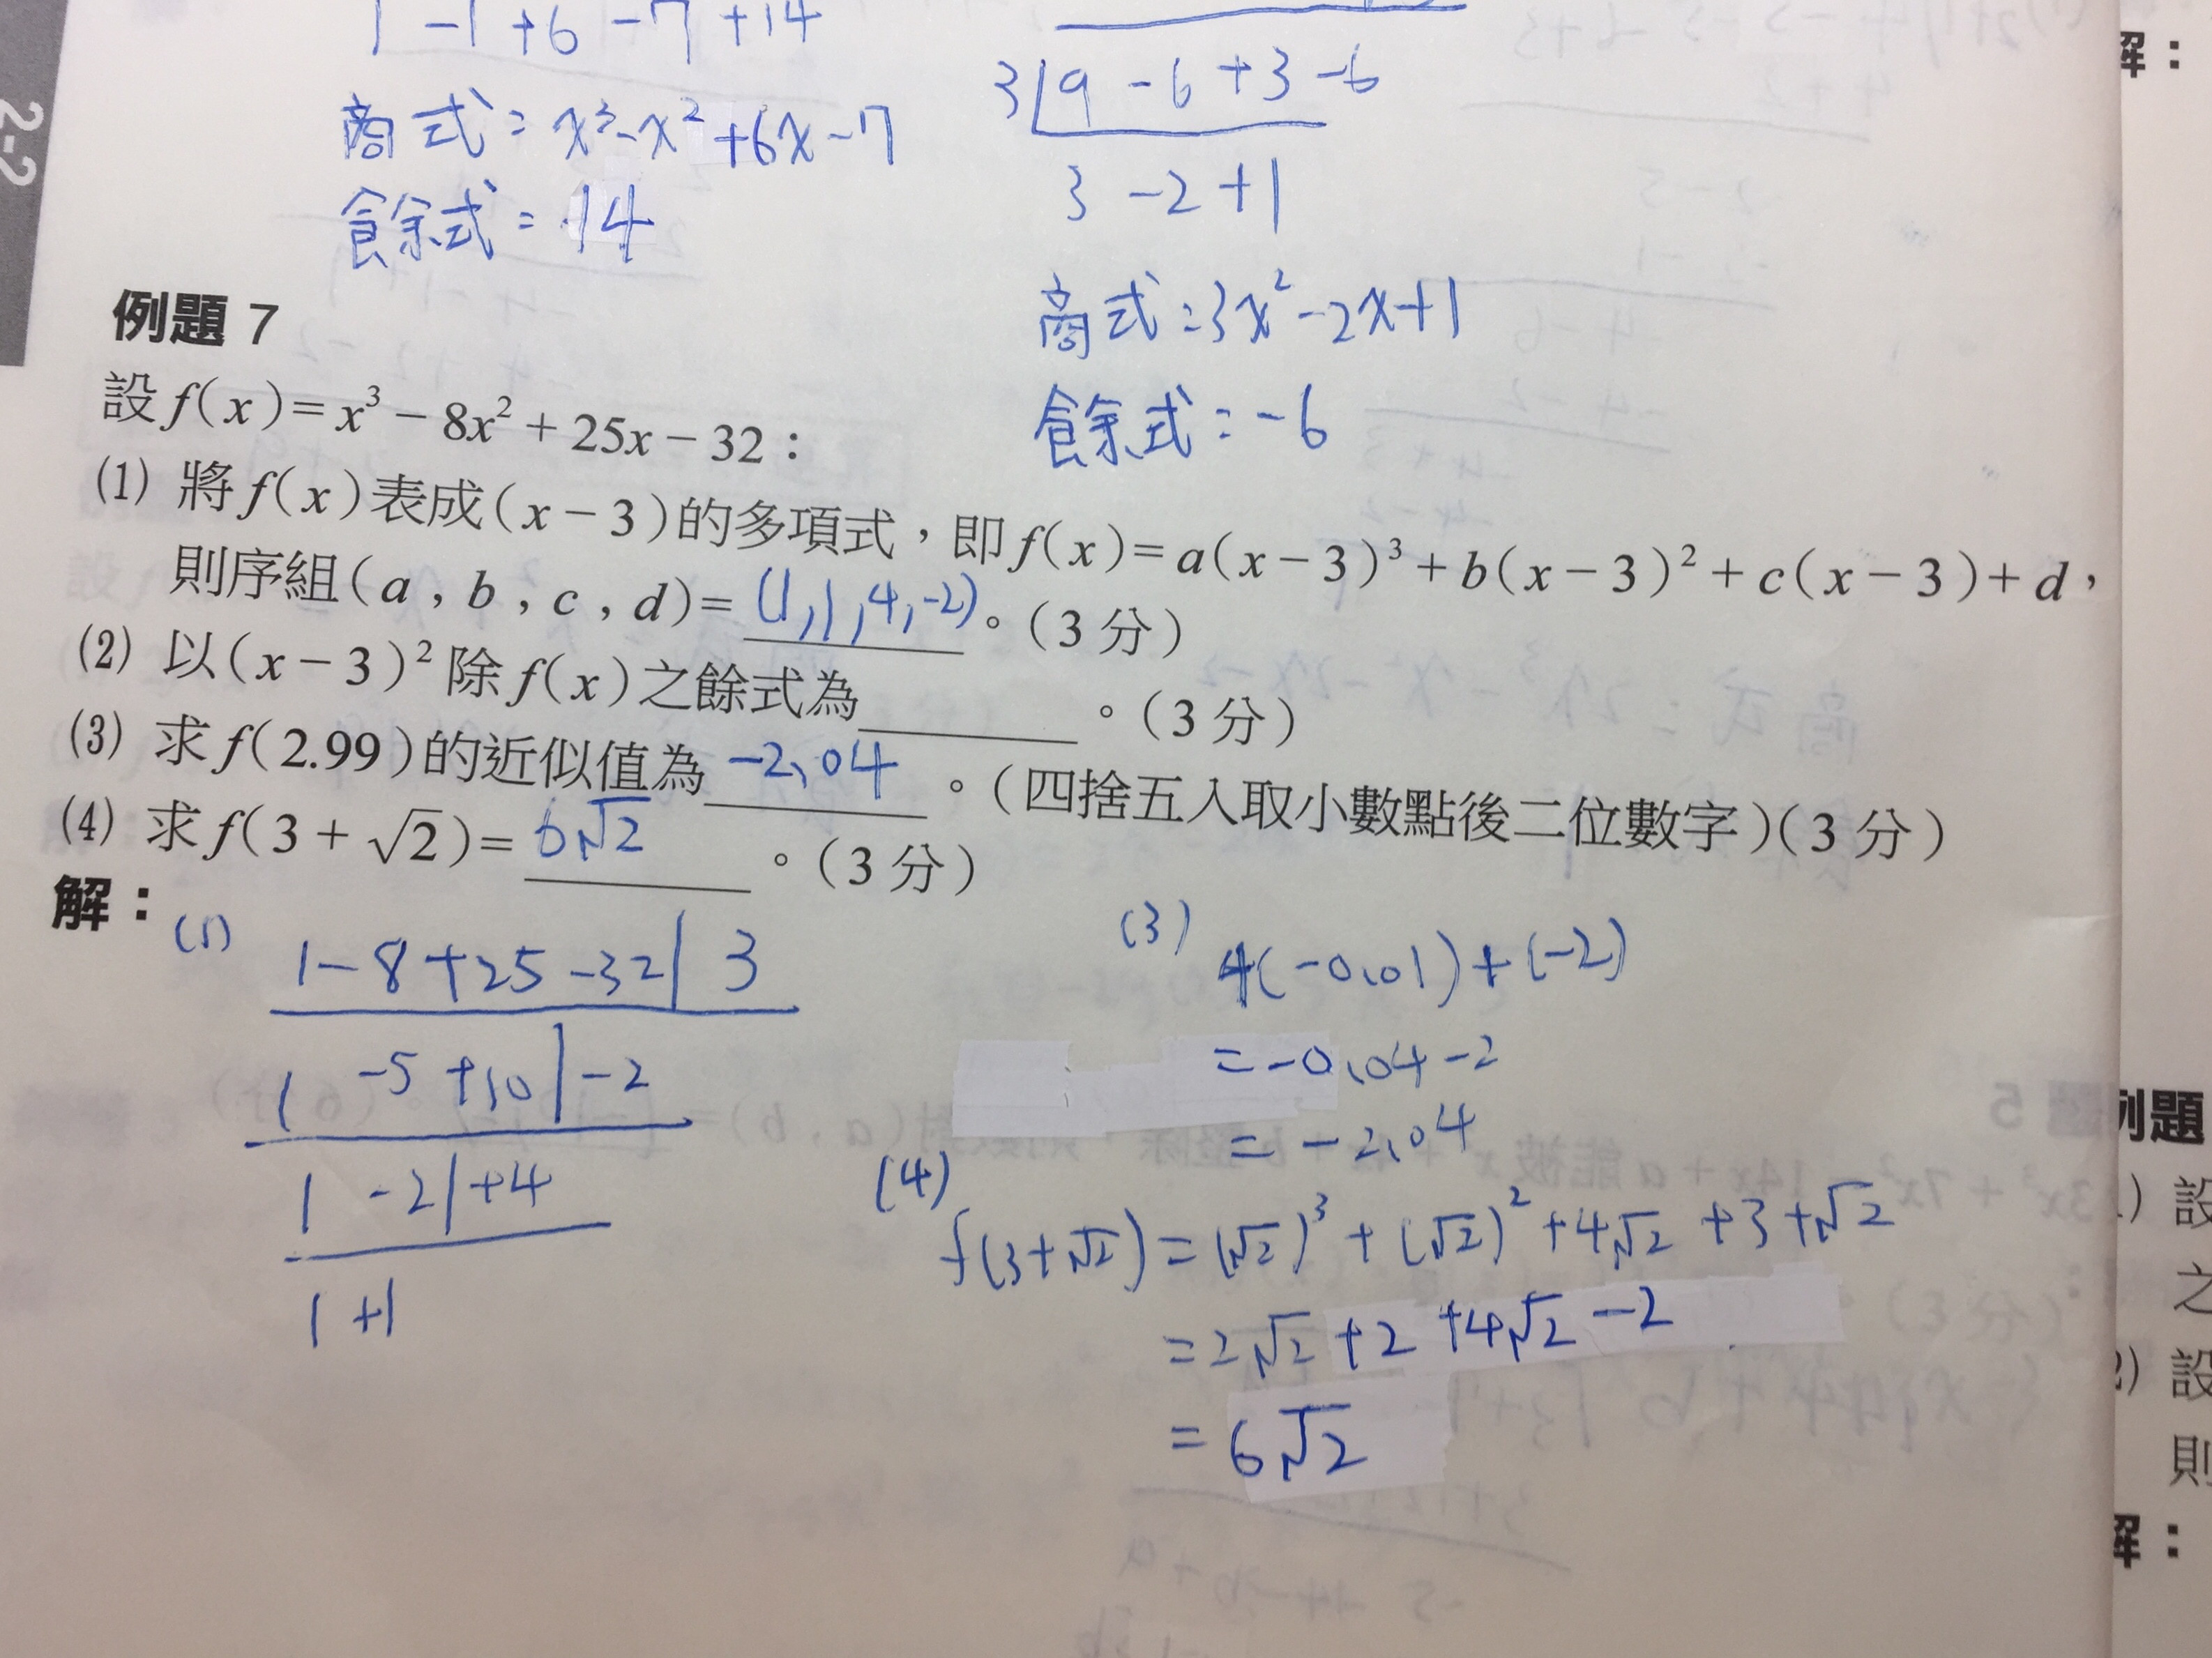 1 -1 +6 -7 +14
商式 = x³-x²+6x-7
餘式 = 14
3 9 -6 +3 -6
3 -2 +1
商式 = 3x²-2x+1
餘式 = -6
2-2
例題 7
設 f(x)=x³-8x²+25x-32：
(1) 將 f(x)表成(x-3)的多項式，即 f(x)=a(x-3)³+b(x-3)²+c(x-3)+d，
則序組(a,b,c,d)=(1,1,4,-2)。(3 分)
(2) 以(x-3)²除 f(x)之餘式為 。(3 分)
(3) 求 f(2.99)的近似值為 -2.04 。(四捨五入取小數點後二位數字)(3 分)
(4) 求 f(3+√2)= 6√2 。(3 分)
解：
(1)
1 -8 +25 -32 | 3
1 -5 +10 | -2
1 -2 | +4
1 +1
(3)
4(-0.01)+(-2)
= -0.04-2
= -2.04
(4)
f(3+√2) = (√2)³+(√2)²+4√2+3+√2
= 2√2+2+4√2-2
= 6√2
解：
例題
設
之
2) 設
則
解：